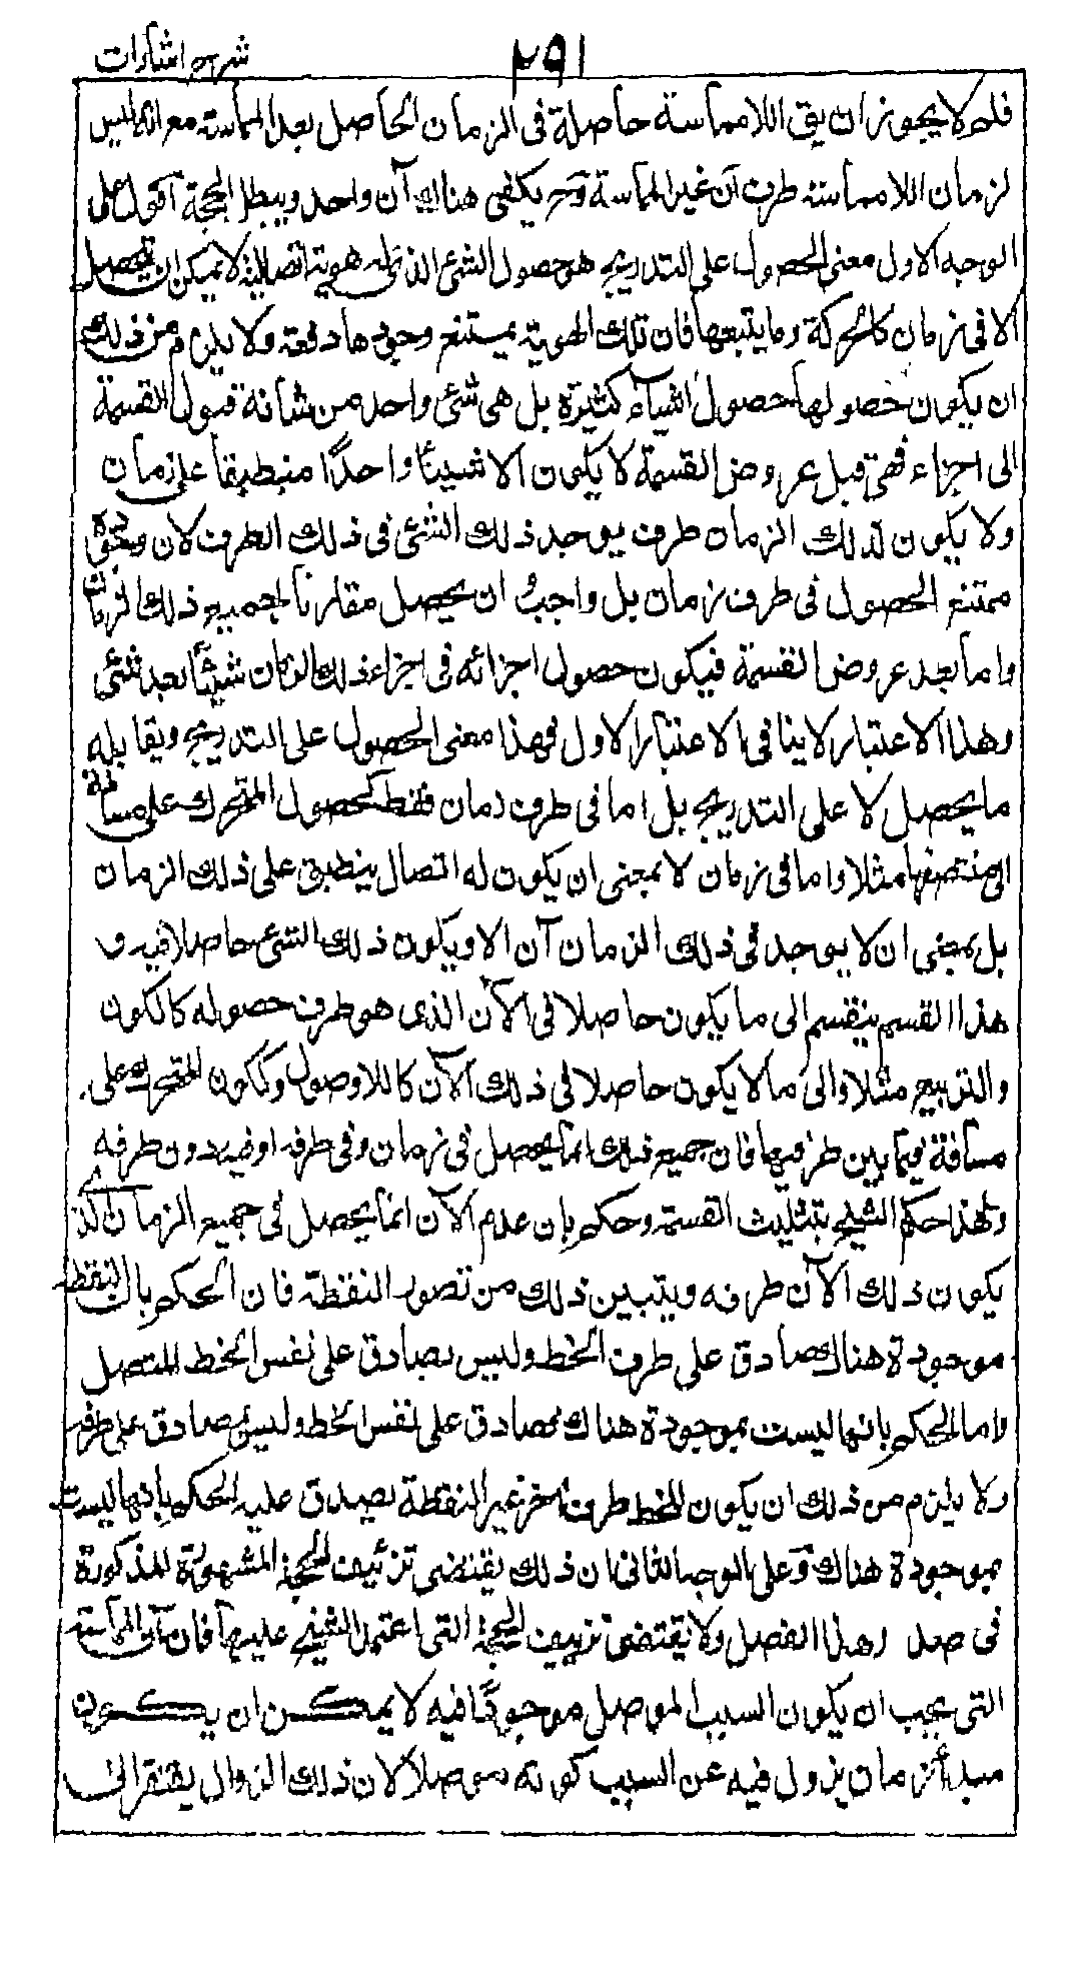 ٢٩١
شرح اشارات
فلم لا يجوز ان يق اللامماسة حاصلة فى الزمان الحاصل بعد المماسة مع انه ليس
لزمان اللامماسته طرف آن غير المماسة وح يكفى هناك آن واحد ويبطل الحجة اقول على
الوجه الاول معنى الحصول على التدريج هو حصول الشئ الذى له هوية اتصالية لا يمكن ان يحصل
الا فى زمان كالحركة وما يتبعها فان تلك الهوية يمتنع وجودها دفعة ولا يلزم من ذلك
ان يكون حصولها حصول اشياء كثيرة بل هى شئ واحد من شانه قبول القسمة
الى اجزاء فهى قبل عروض القسمة لا يكون الا شيئا واحدًا منطبقا على زمان
ولا يكون لذلك الزمان طرف يوجد ذلك الشئ فى ذلك الطرف لان وجوده
ممتنع الحصول فى طرف زمان بل واجبُ ان يحصل مقارنا لجميع ذلك الزمان
واما بعد عروض القسمة فيكون حصول اجزائه فى اجزاء ذلك الزمان شيئًا بعد شئ
وهذا الاعتبار لا ينافى الاعتبار الاول فهذا معنى الحصول على التدريج ويقابله
ما يحصل لا على التدريج بل اما فى طرف زمان فقط كحصول المتحرك على مسافة
الى منتصفها مثلا واما فى زمان لا بمعنى ان يكون له اتصال ينطبق على ذلك الزمان
بل بمعنى ان لا يوجد فى ذلك الزمان آن الا ويكون ذلك الشئ حاصلا فيه و
هذا القسم ينقسم الى ما يكون حاصلا فى الآن الذى هو طرف حصوله كالكون
والتربيع مثلا والى ما لا يكون حاصلا فى ذلك الآن كاللاوصول وككون المتحرك على
مسافة فيما بين طرفيها فان جميع ذلك انما يحصل فى زمان وفى طرفه او فيه دون طرفه
ولهذا حكم الشيخ بتثليث القسمة وحكم بان عدم الآن انما يحصل فى جميع الزمان الذى
يكون ذلك الآن طرفه ويتبين ذلك من تصور النقطة فان الحكم بان النقطة
موجودة هناك صادق على طرف الخط وليس بصادق على نفس الخط المتصل
واما الحكم بانها ليست بموجودة هناك فصادق على نفس الخط وليس بصادق على طرفه
ولا يلزم من ذلك ان يكون للخط طرف آخر غير النقطة يصدق عليه الحكم بانها ليست
بموجودة هناك وعلى الوجه الثانى ان ذلك يقتضى تزئيف الحجة المشهورة المذكورة
فى صدر هذا الفصل ولا يقتضى تزييف الحجة التى اعتمد الشيخ عليها فان آن المماسة
التى يجب ان يكون السبب الموصل موجودًا فيه لا يمكن ان يكون
مبدأ زمان يزول فيه عن السبب كونه موصلا لان ذلك الزوال يفتقر الى